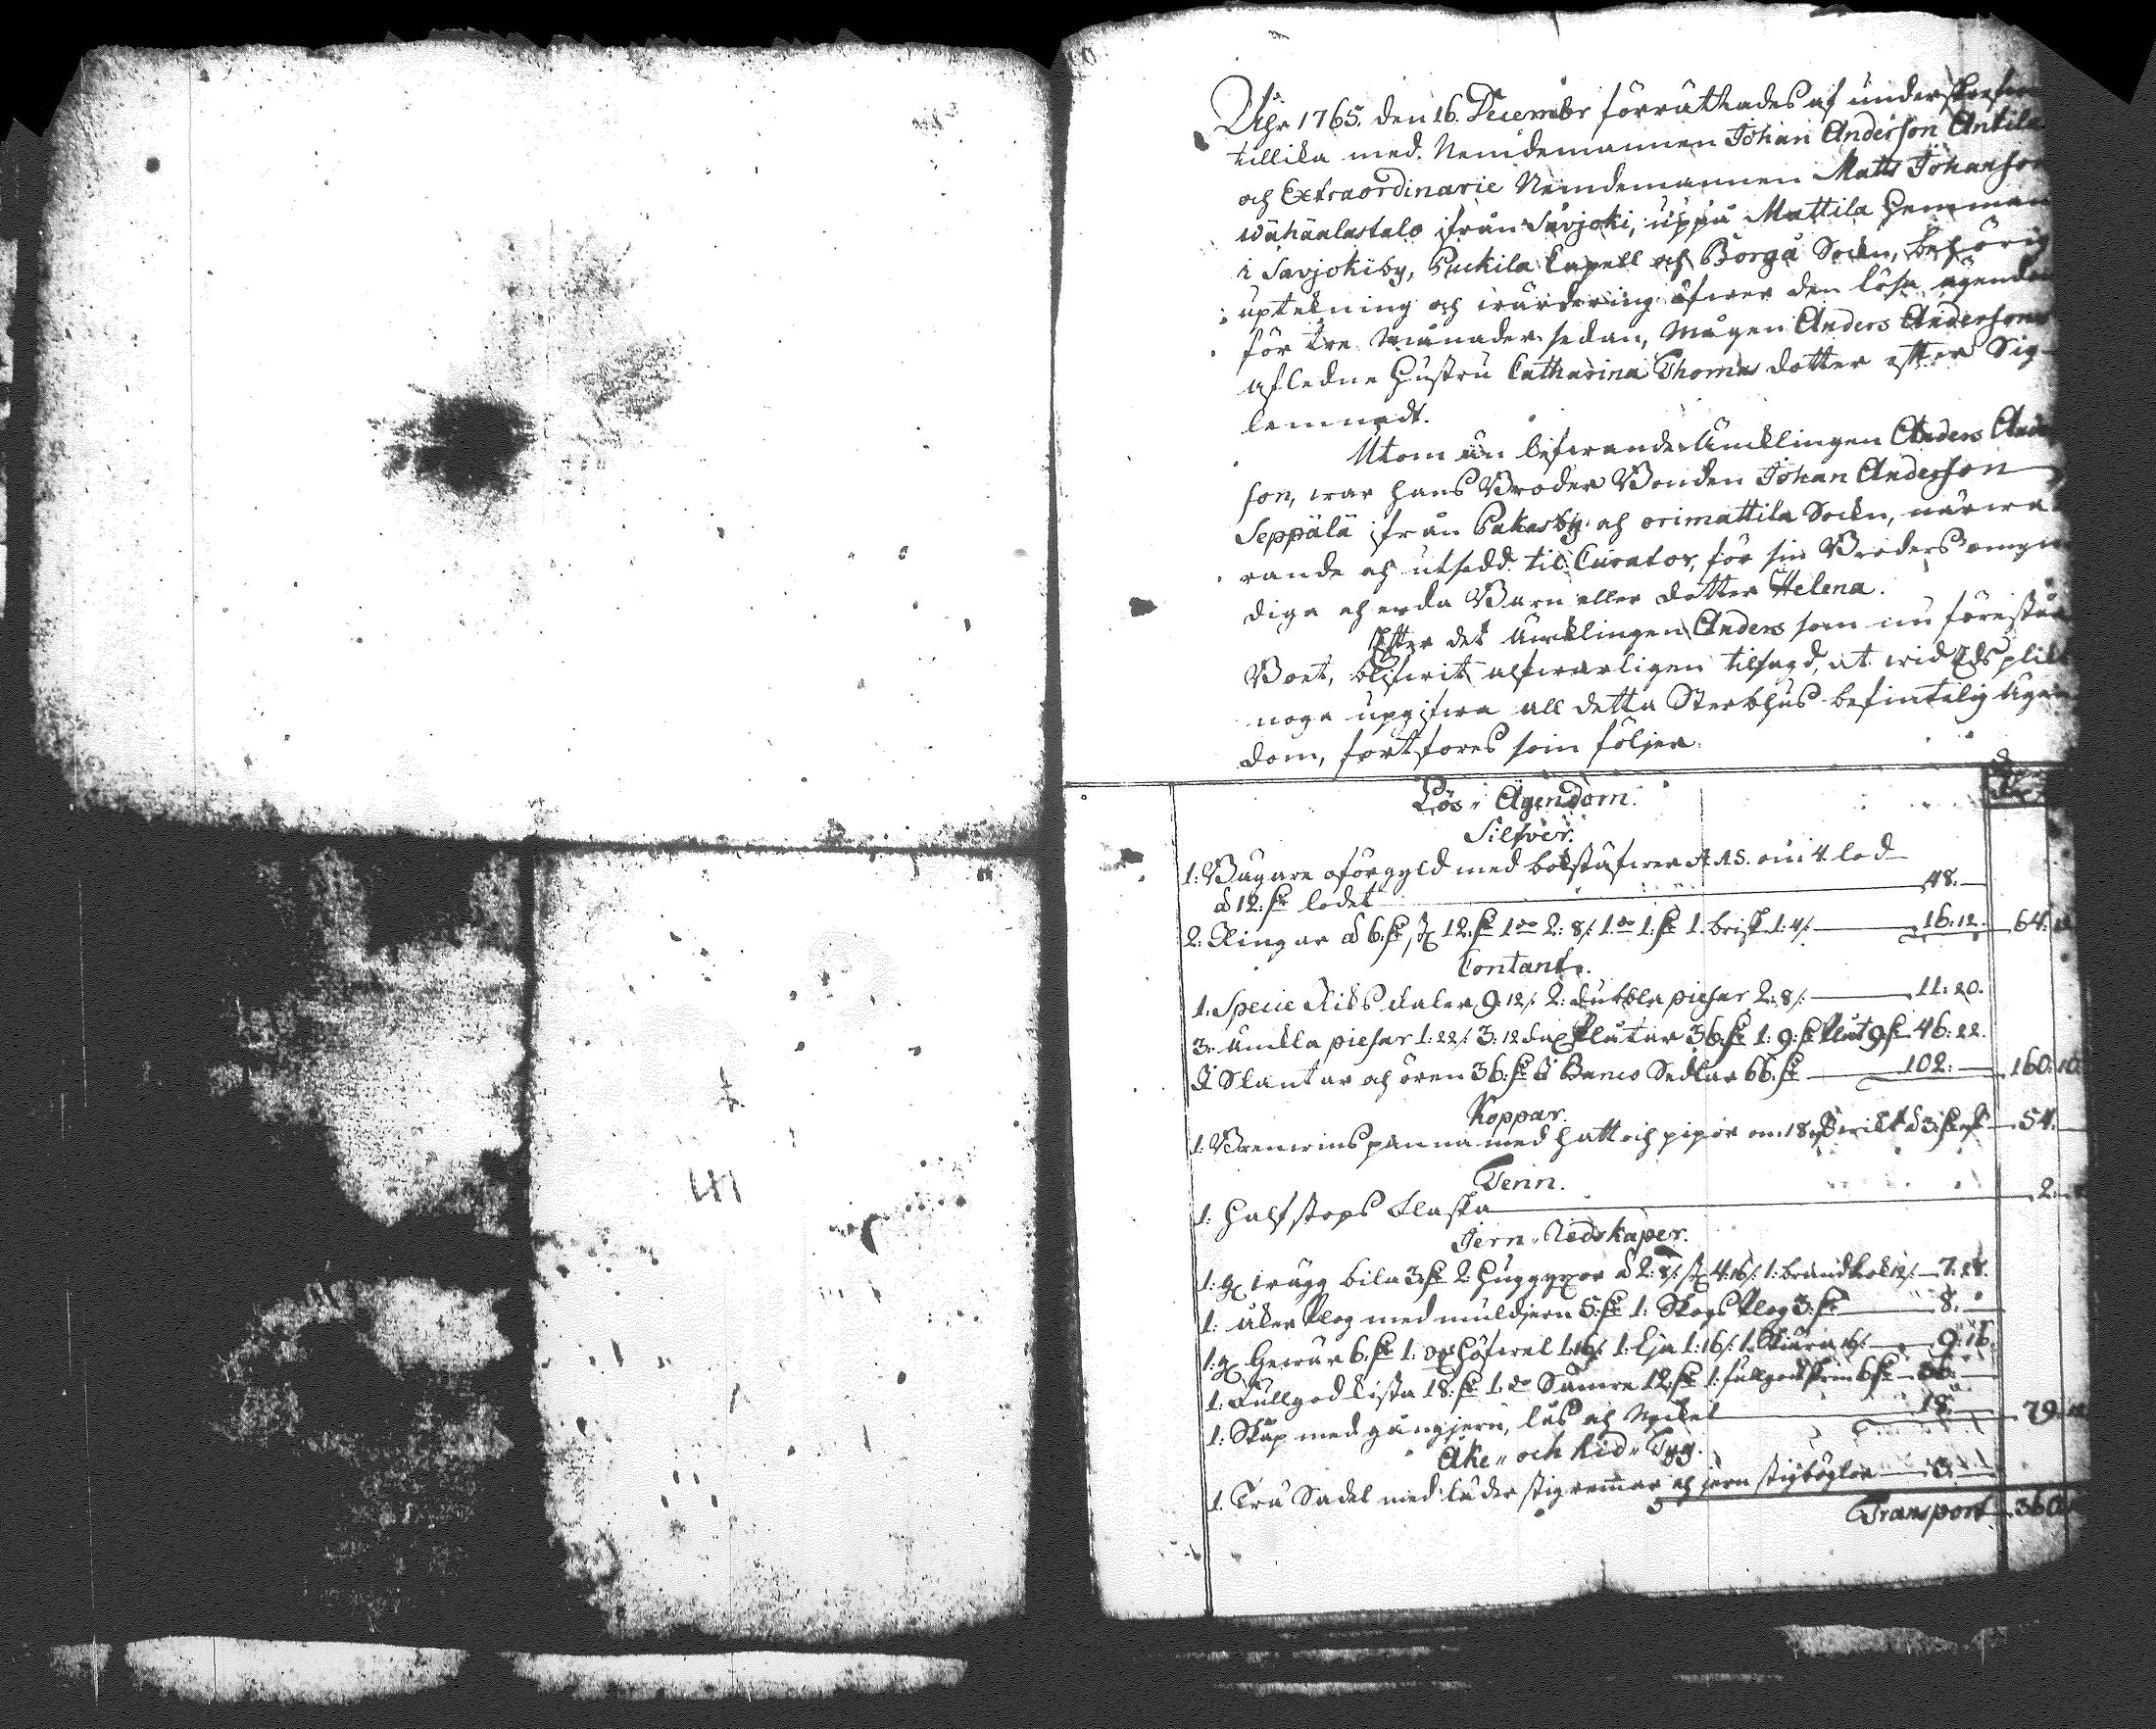 Åhr 1765. den 16. Decembr förrättades af underskrefne
tillika med Nemdemannen Johan Anderson Antila
och Extraordinarie Nemdemannen Matts Johanson
wähäalastalo ifrån Savjoki, uppå Mattila Hemman
i Savjokiby, Puckila Capell och Borgå Sockn, behörig
uptekning och wärdering öfwer den lösa ägendom
för tre månader sedan, Mågen Anders Andersons
afledne Hustru Catharina Thomas dotter efter Sig
lemnadt.
Utom än lefwande Änklingen Anders Ander
son, war hans Broder Bonden Johan Anderson
Seppälä ifrån Pakasby och orimattila Sockn, närwa
rande och utsedd til Curator, för sin Broders omyn
diga och enda Barn eller dotter Helena.
Efter det Änklingen Anders som nu förestår
Boet, blifwit alfwarligen tilsagd, at wid Edsplikt
noga upgifwa all detta Sterbhus befintelig Ägen
dom, fortfores som följer.
Lös-Ägendom.
Silfver.
1. Bägare oförgyld med bokstäfwer A.A.S. om 4 lod
à 12. lodet 48.
2. Ringar à 6. st 12. 1 do 2: 8/. 1 do 1. 1. brisk 1:4/. 16:12. 64:12
Contant.
1. Specie Riksdaler 9:12/. 2. dubbla piesar 2:8/. 11:20.
3. Enkla piesar 1:22/. 3. 12 dal Plåtar 36. 1. 9. Plåt 9 46:22.
I Slantar och ören 36. I Banco Sedlar 66. 102. 160:10
Koppar.
1. Brenwinspanna med hatt och pipor om 18 wikt à 3. 54.
Tenn.
1. Halfstops Flaska 2.
Jern-Redskaper.
1. trägg bila 3. 2. Huggyxor à 2:8/. st 4:16/. 1. brandhake 12/. 7:28.
1. åker Plog med muldjern 5. 1. Skogs Plog 3. 8.
1. Gewär 6. 1. Höfwel 1:16/. 1. Lja 1:16/. 1. Skära 16/. 9:16.
1. Fullgod kista 18. 1 do Sämre 12. 1. fullgod Skrin 6 36.
1. Skåp med gångjern, lås och Nyckel 18. 79:12
Åke- och Rid-Tyg.
1. Trä Sadel med läder stigremmar och jern stigbyglor 3.
Transport 360